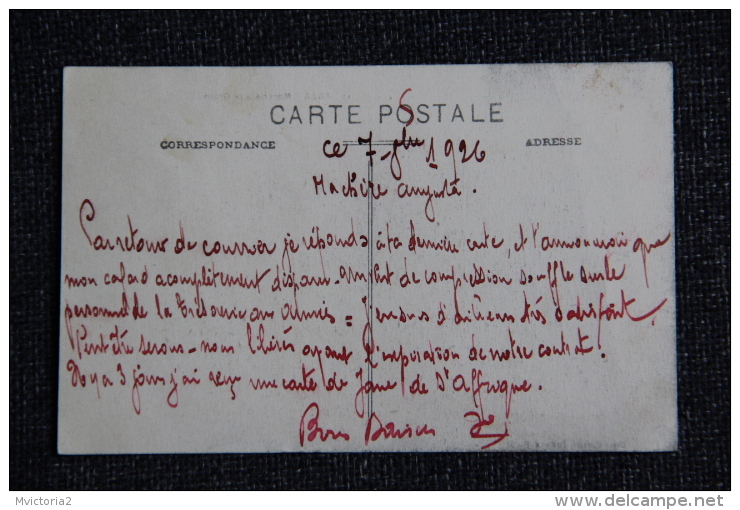 CARTE POSTALE
CORRESPONDANCE
ADRESSE
ce 7 - 1926
Ma chère Augusta.
Par retour de courrier je réponds à ta dernière carte, et t'annoncerai que
mon cafard a complètement disparu. Un vent de compression souffle sur le
personnel de la Trésorerie aux Armées = J'en suis d'ailleurs très satisfait.
Peut être serons-nous libérés avant l'expiration de notre contrat!
Il y a 3 jours j'ai reçu une carte de Jane de St Affrique.
Bons Baisers
Mvictoria2
http://www.delcampe.net